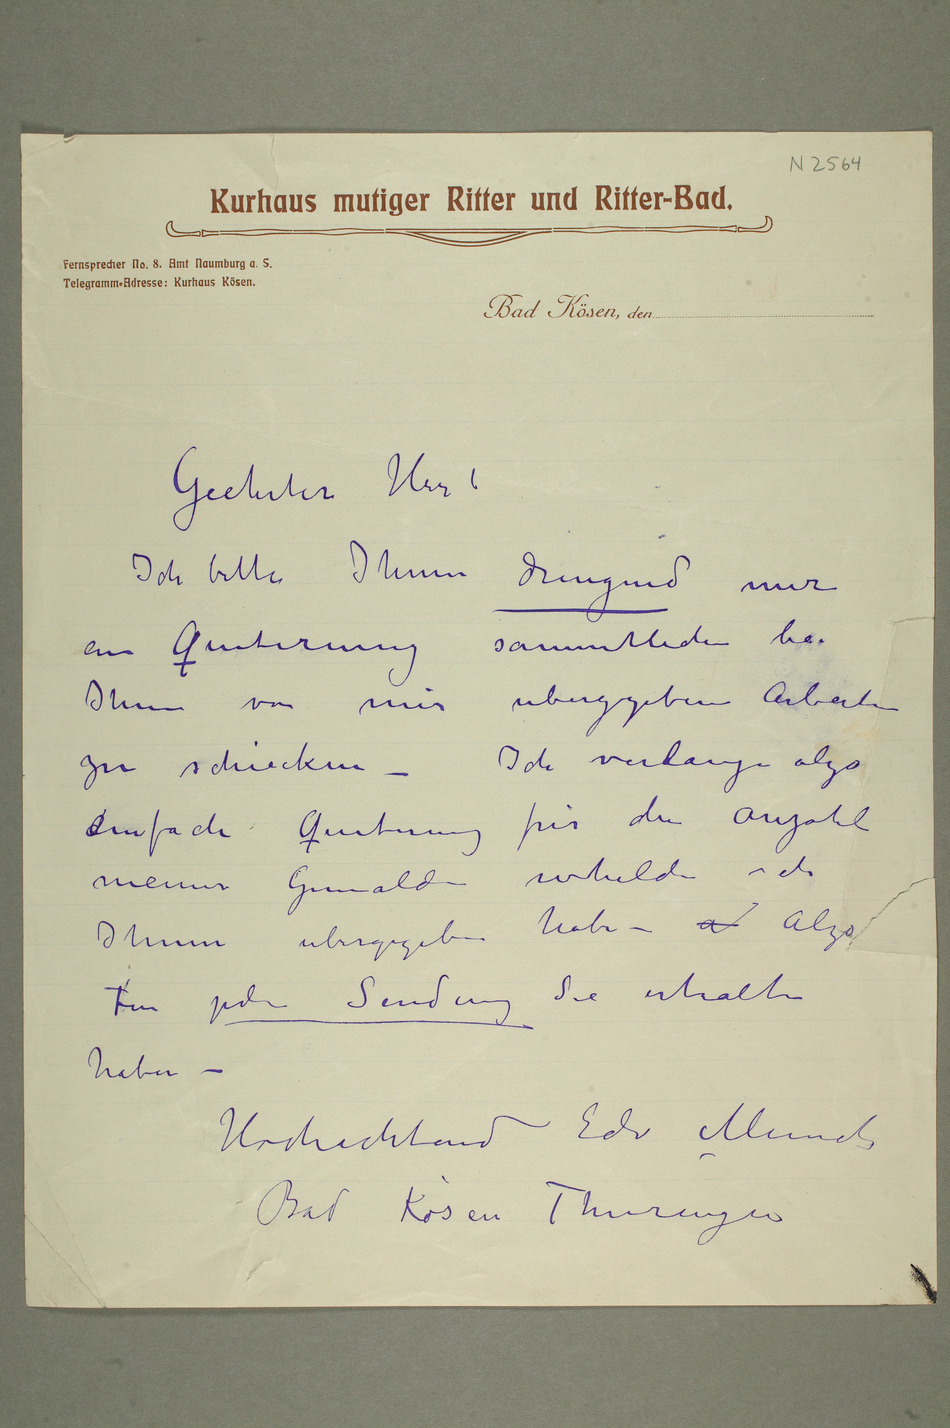 N 2564
Kurhaus mutiger Ritter und Ritter-Bad.
Fernsprecher No. 8. Amt Naumburg a. S.
Telegramm-Adresse: Kurhaus Kösen.
Bad Kösen, den
Geehrter Herr!
Ich bitte Ihnen dringend mir
ein Quiterung sammtlichen bei
Ihnen von mir ubergegeben Arbeiten
zu schiecken – Ich verlange alzo
einfach Quiterung für den Anzahl
meiner Gemalde welche ich
Ihnen ubergegeben habe – Alzo
Für jeden Sendung Sie erhalten
haben –
Hochachtend Edv Munch
Bad Kösen Thuringen